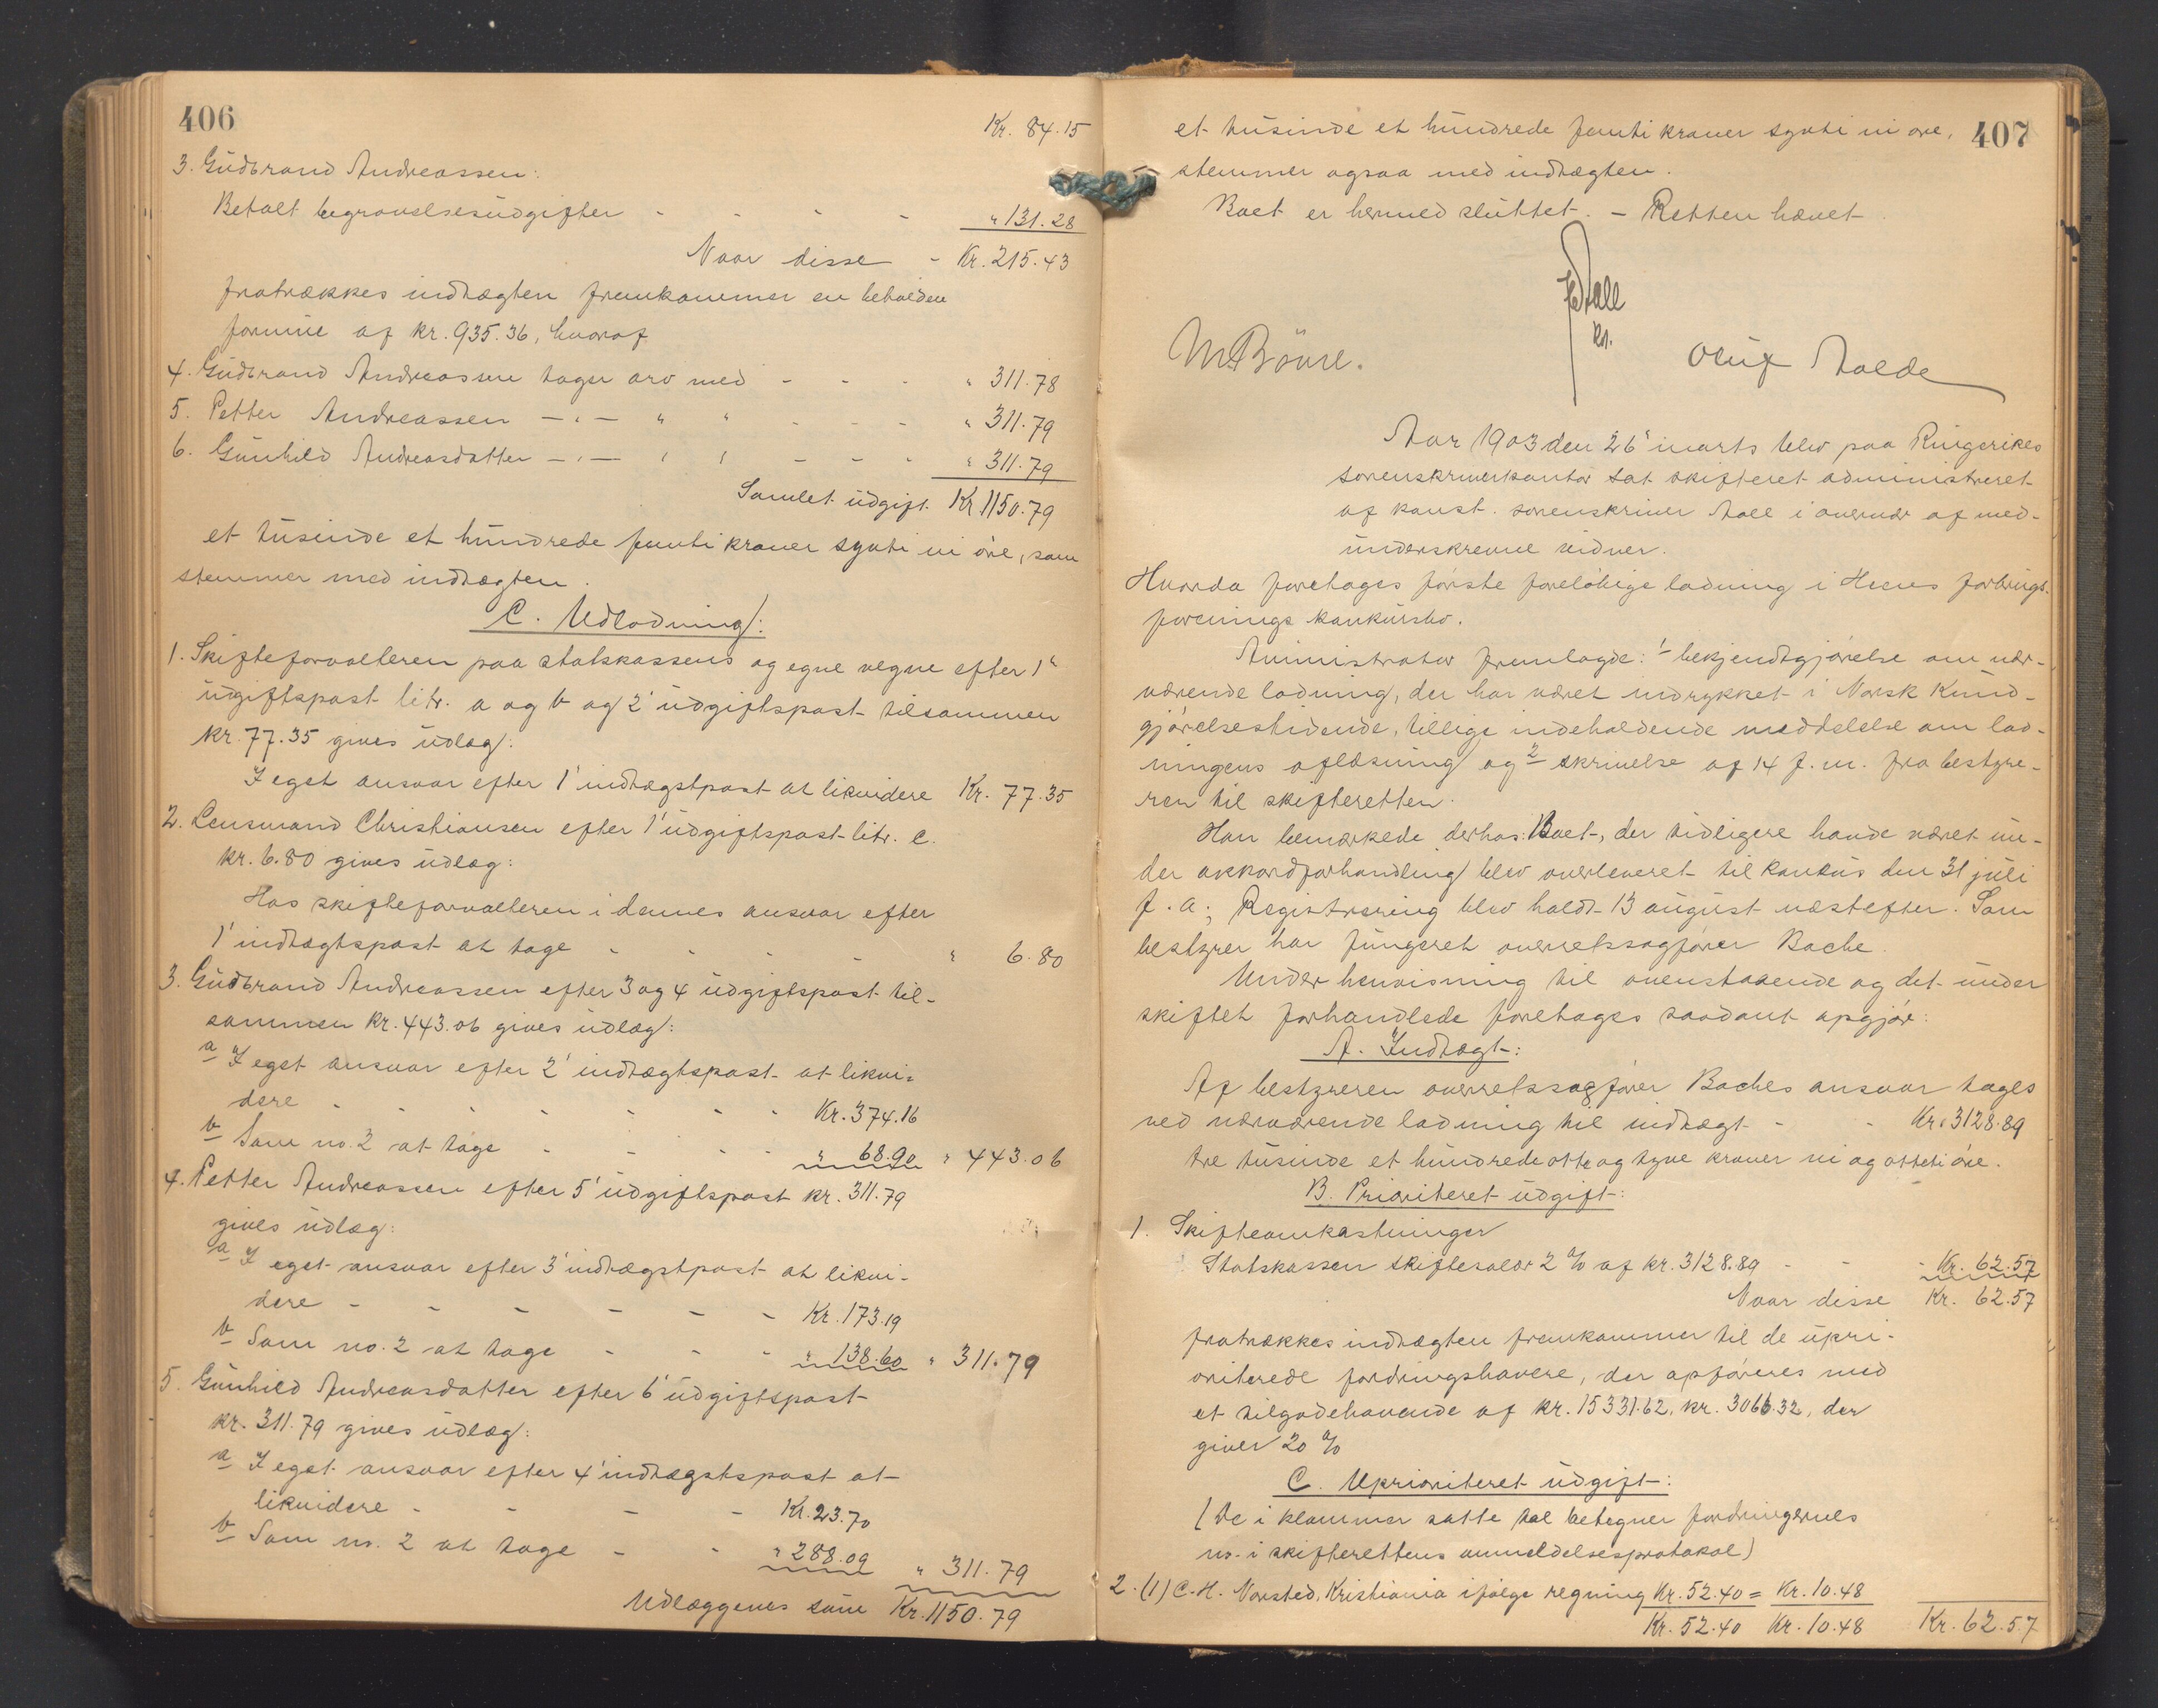 406
Kr. 84.15
3. Gudbrand Andreassen:
Betalt begravelsesudgifter - - - - " 131.28
Naar disse - Kr. 215.43
fratrækkes indtægten fremkommer en beholden
formue af kr. 935.36, hvoraf
4. Gudbrand Andreassen tager arv med - - - " 311.78
5. Petter Andreassen — " — " " - - - " 311.79
6. Gunhild Andreasdatter — " — " " - - - " 311.79
Samlet udgift Kr 1150.79
et tusinde et hundrede femti kroner sytti ni øre, som
stemmer med indtægten.
C. Udlodning:
1. Skifteforvalteren paa statskassens og egne vegne efter 1'
udgiftspost litr. a og b og 2' udgiftspost tilsammen
kr. 77.35 gives udlæg:
I eget ansvar efter 1' indtægtspost at likvidere Kr. 77.35
2. Lensmand Christiansen efter 1' udgiftspost litr. c.
kr. 6.80 gives udlæg:
Hos skifteforvalteren i dennes ansvar efter
1' indtægtspost at tage - - - - " 6.80
3. Gudbrand Andreassen efter 3 og 4 udgiftspost til-
sammen kr. 443.06 gives udlæg:
a I eget ansvar efter 2' indtægtspost at likvi-
dere - - - - - - Kr. 374.16
b Som no. 2 at tage - - - - " 68.90 " 443.06
4. Petter Andreassen efter 5' udgiftspost kr. 311.79
gives udlæg:
a I eget ansvar efter 3' indtægtspost at likvi-
dere - - - - - - Kr. 173.19
b Som no. 2 at tage - - - " 138.60 " 311.79
5. Gunhild Andreasdatter efter 6' udgiftspost
kr. 311.79 gives udlæg:
a I eget ansvar efter 4' indtægtspost at
likvidere - - - - Kr. 23.70
b Som no. 2 at tage - - " 288.09 " 311.79
Udlæggenes sum Kr. 1150.79
407
et tusinde et hundrede femti kroner sytti ni øre,
stemmer ogsaa med indtægten.
Boet er hermed sluttet. - Retten hævet.
Kst.
Oluf Aalde
Aar 1903 den 26' marts blev paa Ringerikes
sorenskriverkontor sat skifteret administreret
af konst. sorenskriver Aall i overvær af med-
underskrevne vidner.
Hvorda foretages første foreløbige lodning i Heens forbrugs-
forenings konkursbo.
Administrator fremlagde: 1 bekjendtgjørelse om nær-
værende lodning, der har været indrykket i Norsk Kund-
gjørelsestidende, tillige indeholdende meddelelse om lod-
ningens oplæsning og 2 skrivelse af 14 f. m. fra bestyre-
ren til skifteretten.
Han bemærkede derhos: Boet, der tidligere havde været un-
der akkordforhandling blev overleveret til konkurs den 31 juli
f. a.; Registrering blev holdt 13 august næstefter. Som
bestyrer har fungeret overretssagfører Bache.
Under henvisning til ovenstaaende og det under
skiftet forhandlede foretages saadant opgjør:
A. Indtægt:
Af bestyreren overretssagfører Baches ansvar tages
ved nærværende lodning til indtægt - - Kr. 3128.89
tre tusinde et hundrede otte og tyve kroner ni og otteti øre.
B. Prioriteret udgift:
1. Skifteomkostninger
Statskassen skiftesalær 2 % af kr. 3128.89 - - - Kr. 62.57
Naar disse Kr. 62.57
fratrækkes indtægten fremkommer til de upri-
oriterede fordringshavere, der opføres med
et tilgodehavende af kr. 15331.62, kr. 3066.32, der
giver 20 %
C. Uprioriteret udgift:
(De i klammer satte tal betegner fordringernes
no. i skifterettens anmeldelsesprotokol)
2. (1) C. H. Norsted, Kristiania ifølge regning Kr. 52.40 = Kr. 10.48
Kr. 52.40 Kr. 10.48 Kr. 62.57